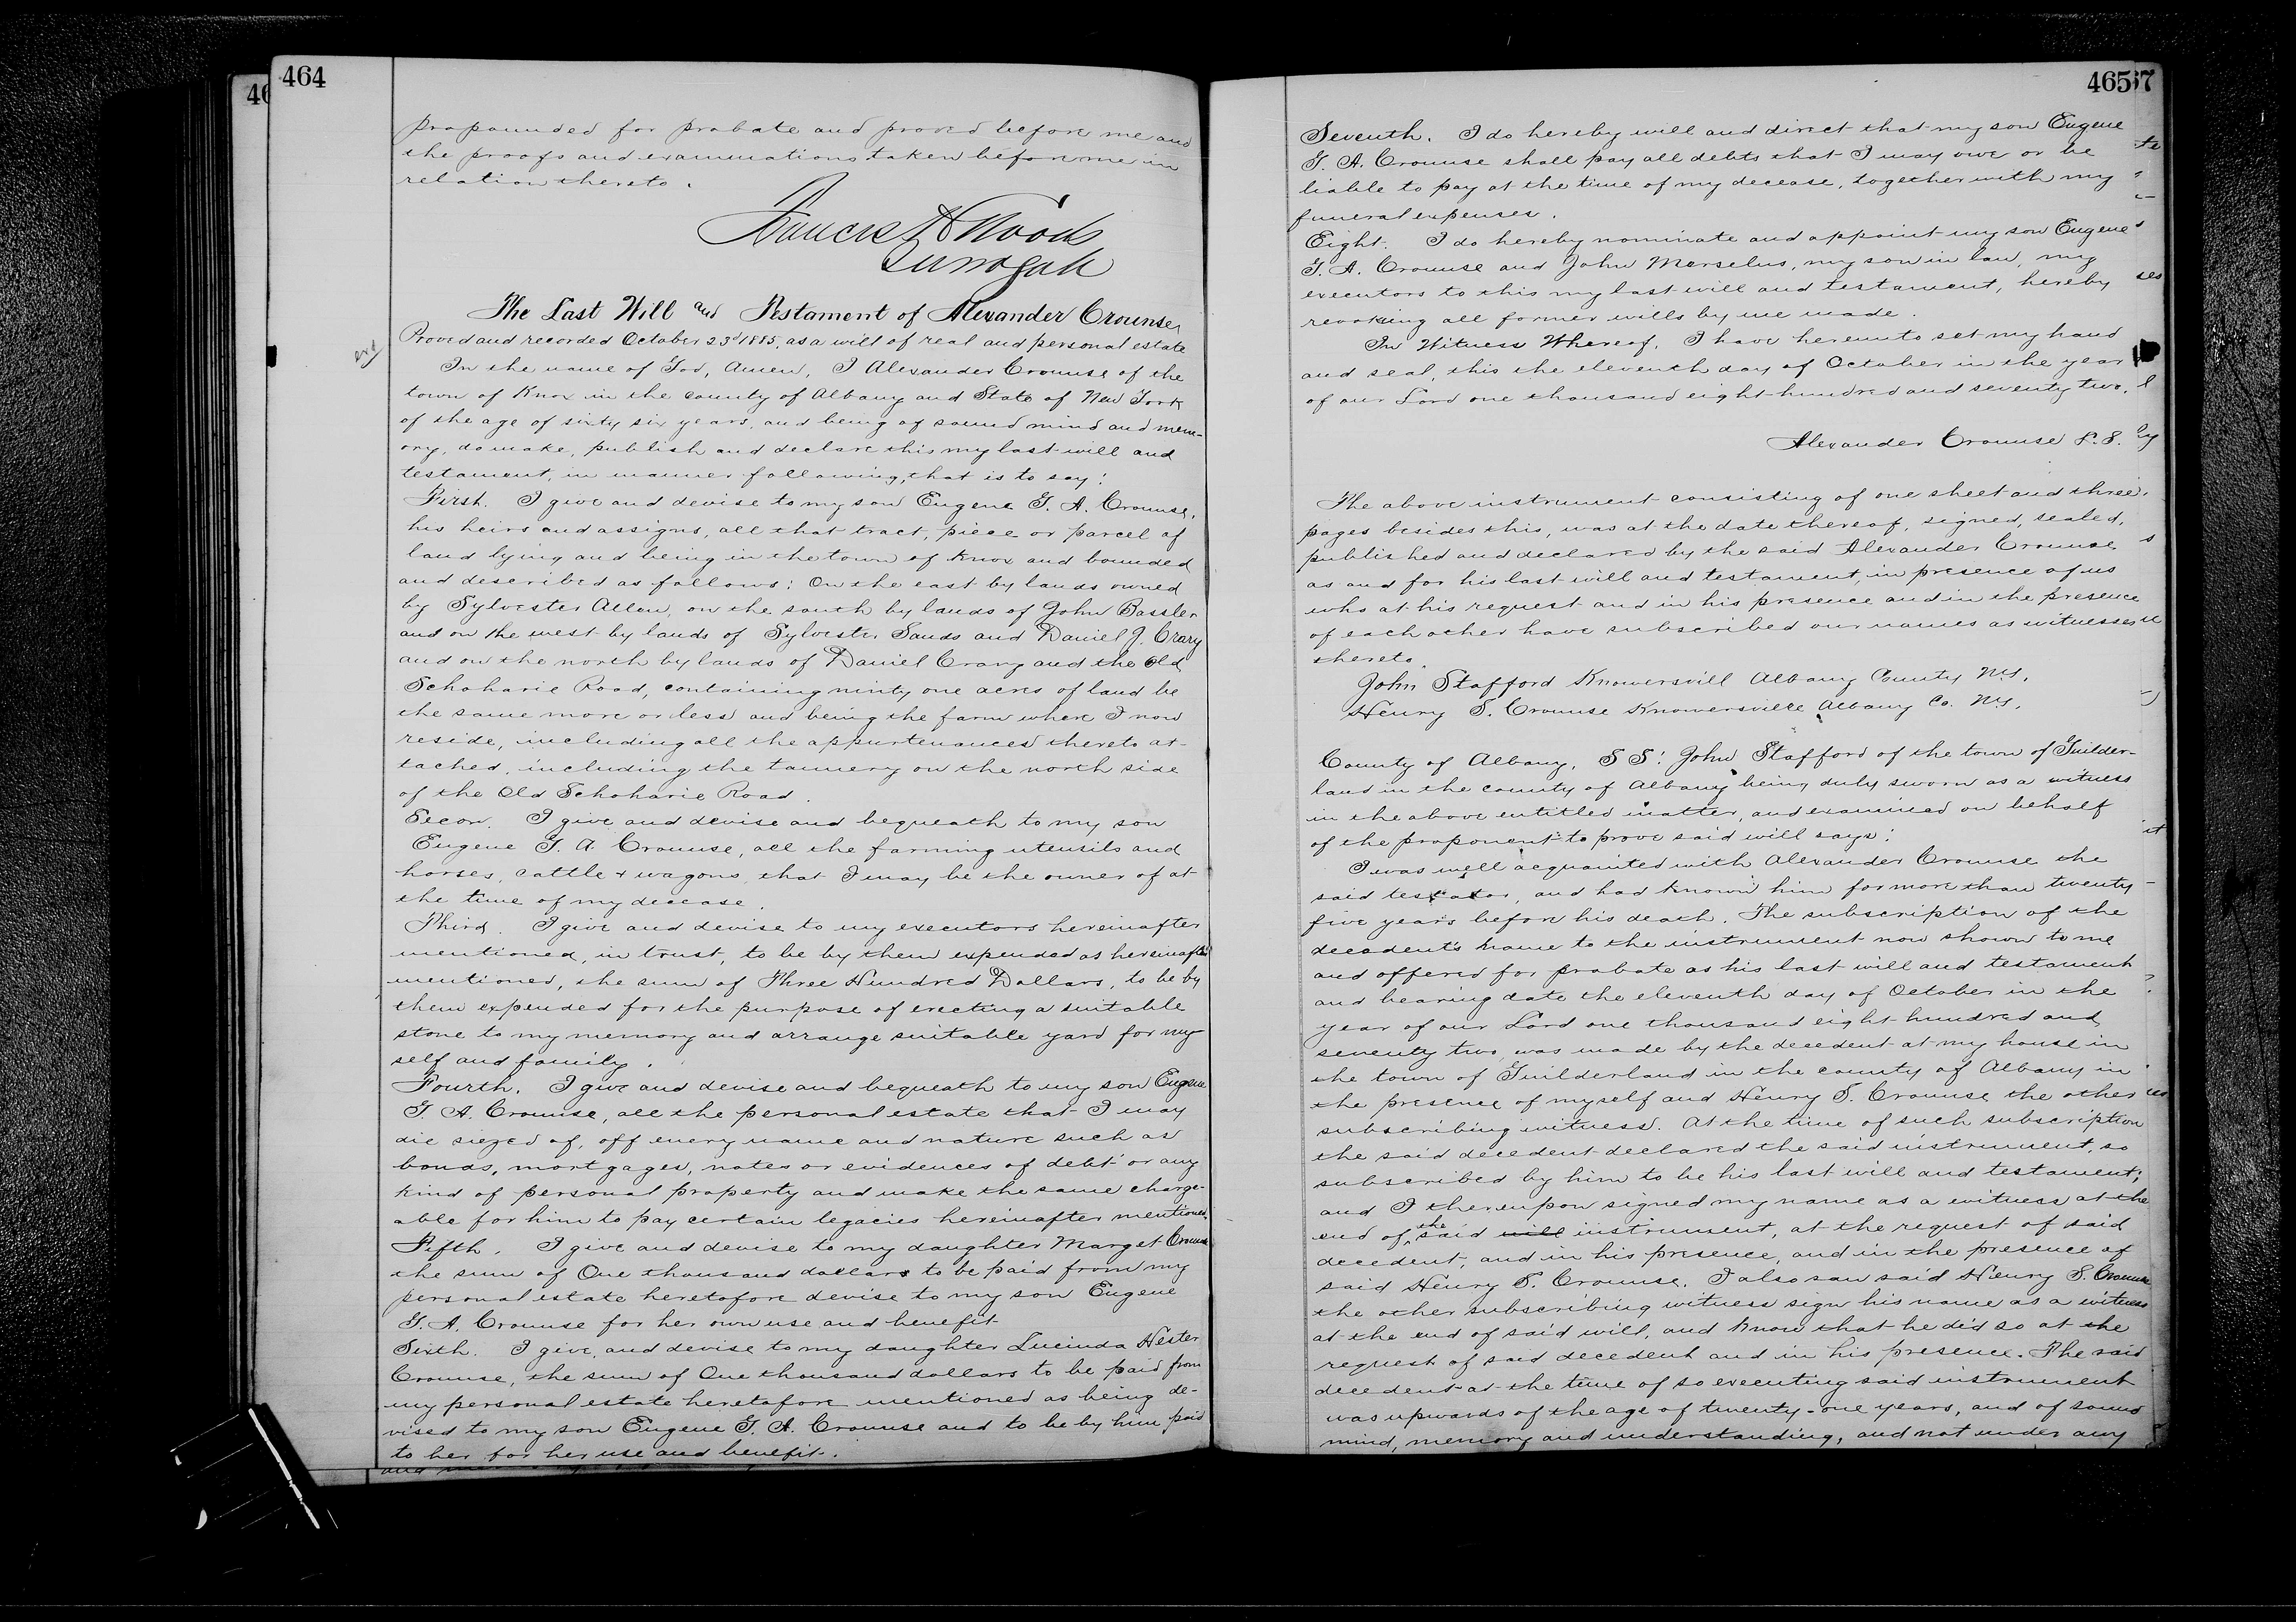 464
propounded for probate and proved before me and
the proofs and examinations taken before me in
relation thereto.
Francis H Woods
Surrogate
The Last Will and Testament of Alexander Crounse
Proved and recorded October 23d 1885, as a will of real and personal estate
In the name of God, Amen, I Alexander Crounse of the
town of Knox in the county of Albany and State of New York
of the age of sixty six years, and being of sound mind and mem-
ory, do make, publish and declare this my last will and
testament, in manner following, that is to say:
First. I give and devise to my son Eugene G. A. Crounse,
his heirs and assigns, all that tract, piece or parcel of
land lying and being in the town of Knox and bounded
and described as follows: On the east by lands owned
by Sylvester Allen, on the south by lands of John Bassler
and on the west by lands of Sylvester Sands and Daniel J. Crary
and on the north by lands of Daniel Crary and the Old
Schoharie Road, containing ninty one acres of land be
the same more or less and being the farm where I now
reside, including all the appurtenances thereto at-
tached, including the tannery on the north side
of the Old Schoharie Road.
Secon. I give and devise and bequeath to my son
Eugene G. A. Crounse, all the farming utensils and
horses, cattle & wagons, that I may be the owner of at
the time of my decease.
Third. I give and devise to my executors hereinafter
mentioned, in trust, to be by them expended as hereinafter
mentioned, the sum of Three Hundred Dollars, to be by
them expended for the purpose of erecting a suitable
stone to my memory and arrange suitable yard for my
self and family.
Fourth. I give and devise and bequeath to my son Eugene
G. A. Crounse, all the personal estate that I may
die siezed of, off every name and nature such as
bonds, mortgages, notes or evidences of debt or any
kind of personal property and make the same charge-
able for him to pay certain legacies hereinafter mentioned.
Fifth. I give and devise to my daughter Marget Crounse
the sum of One thousand dollars to be paid from my
personal estate heretofore devise to my son Eugene
G. A. Crounse for her own use and benefit
Sixth. I give, and devise to my daughter Lucinda Hester
Crounse, the sum of One thousand dollars to be paid from
my personal estate heretofore mentioned as being de-
vised to my son Eugene G. A. Crounse and to be by him paid
to her for her use and benefit.
465
Seventh. I do hereby will and direct that my son Eugene
G. A. Crounse shall pay all debts that I may owe or be
liable to pay at the time of my decease, together with my
funeral expenses.
Eight. I do hereby nominate and appoint my son Eugene
G. A. Crounse and John Marselus, my son in law, my
executors to this my last will and testament, hereby
revoking all former wills by me made.
In Witness Whereof, I have hereunto set my hand
and seal, this the eleventh day of October in the year
of our Lord one thousand eight hundred and seventy two.
Alexander Crounse L. S.
The above instrument consisting of one sheet and three
pages besides this, was at the date thereof, signed, sealed,
published and declared by the said Alexander Crounse
as and for his last will and testament, in presence of us
who at his request and in his presence and in the presence
of each other have subscribed our names as witnesses
thereto.
John Stafford Knowersvill Albany County N.Y.
Henry S. Crounse Knowersville Albany Co. N.Y.
County of Albany, S S: John Stafford of the town of Guilder-
land in the county of Albany being duly sworn as a witness
in the above entitled matter, and examined on behalf
of the proponent to prove said will says:
I was well acquainted with Alexander Crounse the
said testator, and had known him for more than twenty-
five years before his death. The subscription of the
decedent's name to the instrument now shown to me
and offered for probate as his last will and testament
and bearing date the eleventh day of October in the
year of our Lord one thousand eight hundred and
seventy two, was made by the decedent at my house in
the town of Guilderland in the county of Albany in
the presence of myself and Henry S. Crounse the other
subscribing witness. At the time of such subscription
the said decedent declared the said instrument, so
subscribed by him to be his last will and testament;
and I thereupon signed my name as a witness at the
end of the said will instrument, at the request of said
decedent, and in his presence, and in the presence of
said Henry S. Crounse. I also saw said Henry S. Crounse
the other subscribing witness sign his name as a witness
at the end of said will, and know that he did so at the
request of said decedent and in his presence. The said
decedent at the time of so executing said instrument
was upwards of the age of twenty-one years, and of sound
mind, memory and understanding, and not under any